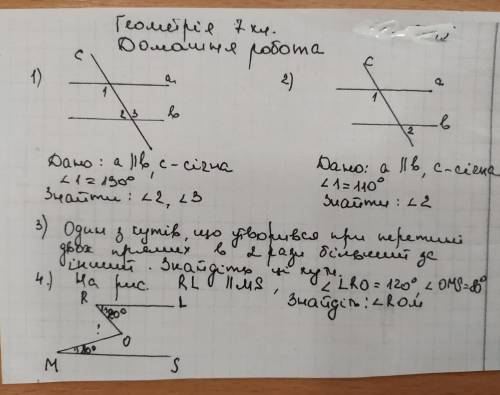 Геометрія 7 кл.
Домашня робота
1)
c
a
1
2 3
b
2)
c
a
1
b
2
Дано: a || b, c - січна
∠1 = 130°
Знайти: ∠2, ∠3
Дано: a || b, c - січна
∠1 = 110°
Знайти: ∠2
3) Один з кутів, що утворився при перетині
двох прямих в 2 рази більший за
інший. Знайдіть ці кути.
4.) На рис. RL || MS, ∠LRO = 120° ∠OMS = 
Знайдіть: ∠ROM
R L
120°
?
O
M S